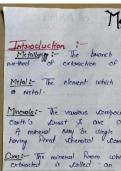 M
Introduction :-
Metallurgy:- The branch
method of extraction of
Metal:- The element which
a metal.
Minerals:- The various compoun
Earth's crust & are c
A mineral may be single
having fixed chemical & com
Ores:- The mineral from whic
extracted is called an